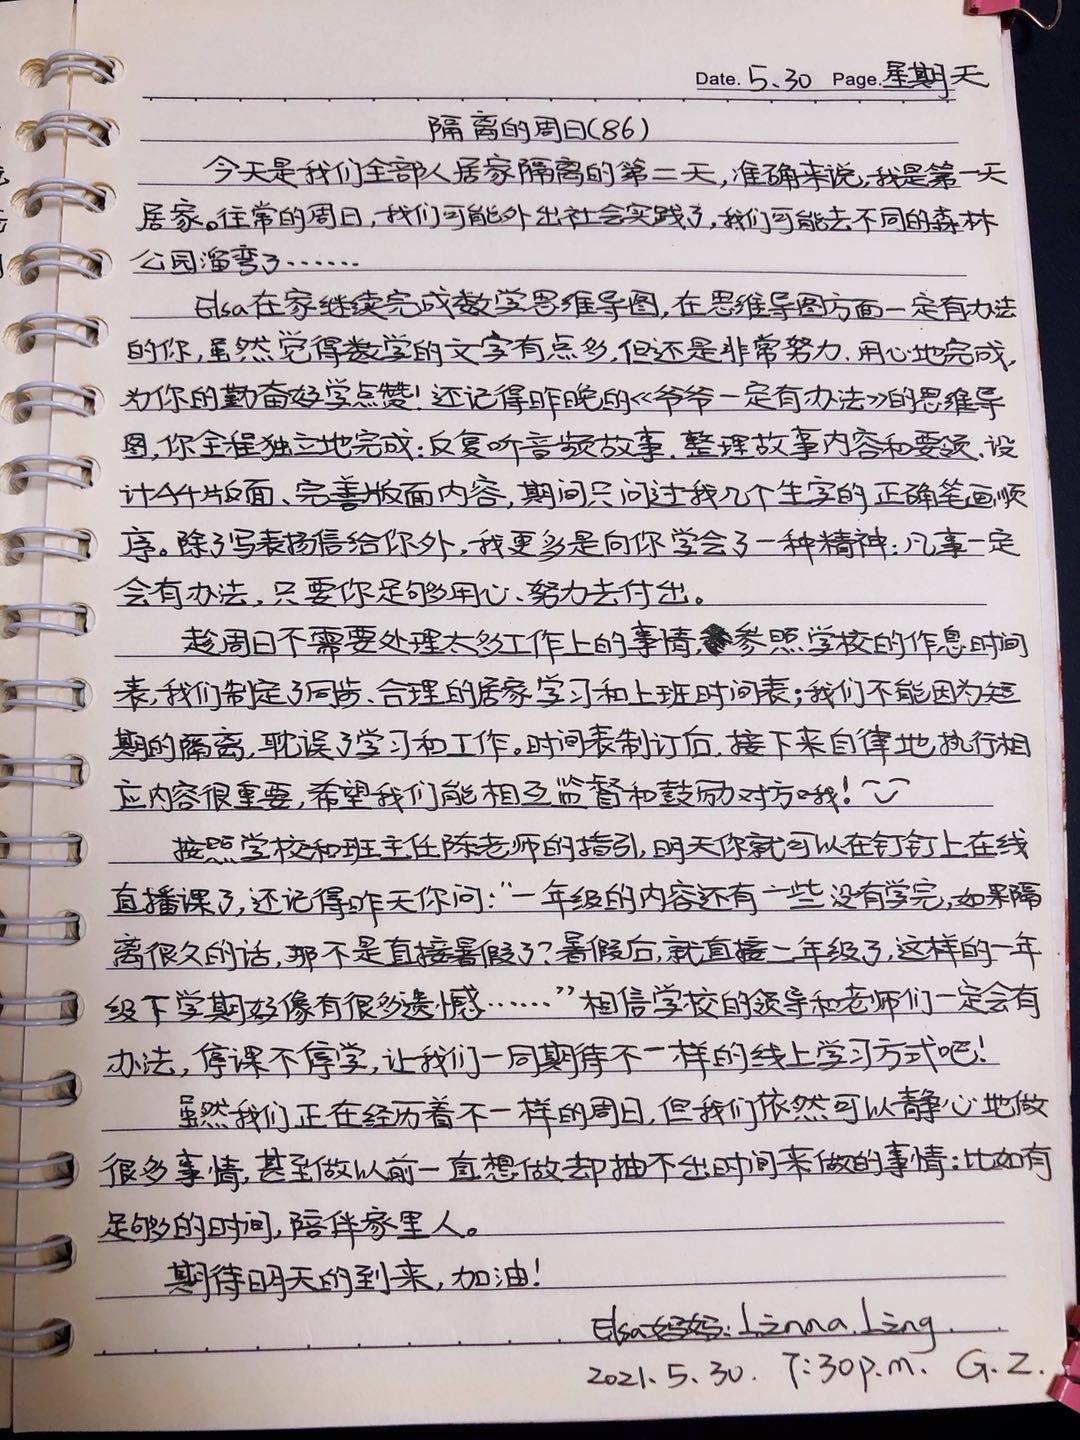 Date. 5.30 Page. 星期天
隔离的周日(86)
今天是我们全部人居家隔离的第二天,准确来说,我是第一天
居家。往常的周日,我们可能外出社会实践了,我们可能去不同的森林
公园溜弯了……
Elsa在家继续完成数学思维导图,在思维导图方面一定有办法
的你,虽然觉得数学的文字有点多,但还是非常努力、用心地完成,
为你的勤奋好学点赞!还记得昨晚的《爷爷一定有办法》的思维导
图,你全程独立地完成:反复听音频故事、整理故事内容和要领、设
计A4版面、完善版面内容,期间只问过我几个生字的正确笔画顺
序。除了写表扬信给你外,我更多是向你学会了一种精神:凡事一定
会有办法,只要你足够用心、努力去付出。
趁周日不需要处理太多工作上的事情,参照学校的作息时间
表,我们制定了同步、合理的居家学习和上班时间表;我们不能因为短
期的隔离,耽误了学习和工作。时间表制订后,接下来自律地执行相
应内容很重要,希望我们能相互监督和鼓励对方哦!
按照学校和班主任陈老师的指引,明天你就可以在钉钉上在线
直播课了,还记得昨天你问:“一年级的内容还有一些没有学完,如果隔
离很久的话,那不是直接暑假了?暑假后,就直接二年级了,这样的一年
级下学期好像有很多遗憾……”相信学校的领导和老师们一定会有
办法,停课不停学,让我们一同期待不一样的线上学习方式吧!
虽然我们正在经历着不一样的周日,但我们依然可以静心地做
很多事情,甚至做以前一直想做却抽不出时间来做的事情:比如有
足够的时间,陪伴家里人。
期待明天的到来,加油!
Elsa妈妈:Linna.Ling
2021.5.30. 7:30p.m. G.Z.